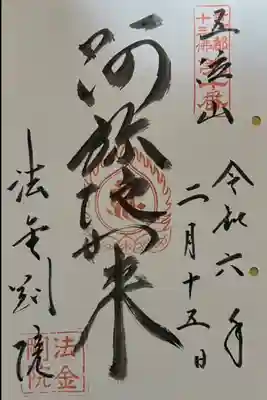 京都
十三佛
令和六年
二月十五日
五位山
阿弥陀如来
法金剛院
法金
剛院